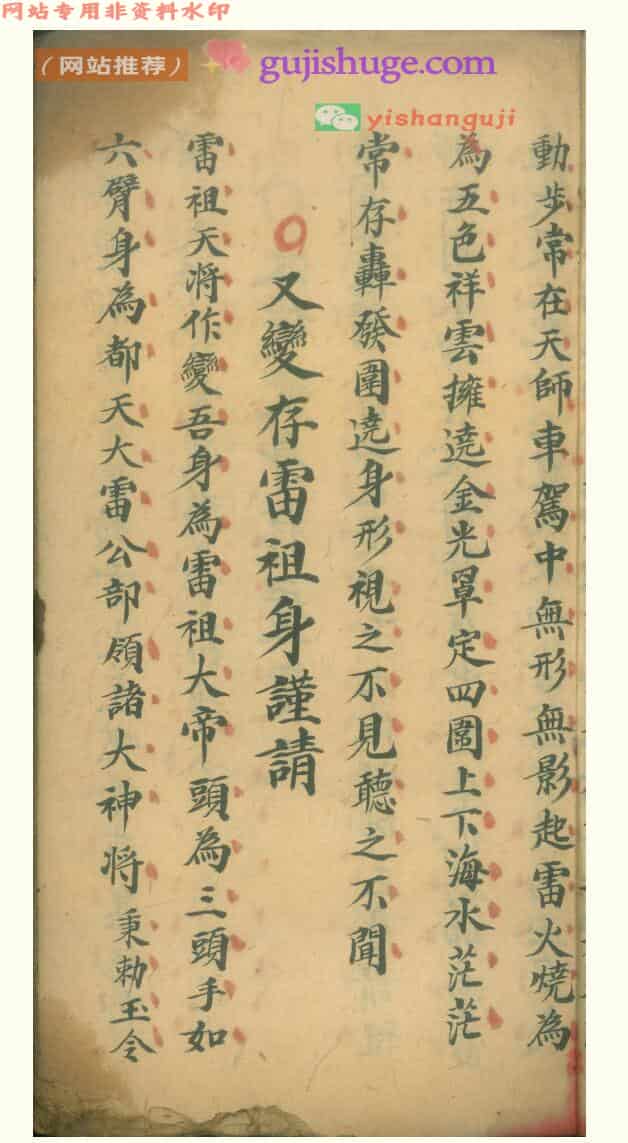 网站专用非资料水印
（网站推荐） gujishuge.com
yishanguji
動步常在天師車駕中無形無影起雷火燒為
為五色祥雲擁遶金光罩定四圍上下海水茫茫
常存轟發圍遶身形視之不見聽之不聞
又變存雷祖身謹請
雷祖天将作變吾身為雷祖大帝頭為三頭手如
六臂身為都天大雷公部領諸大神将秉勅玉令